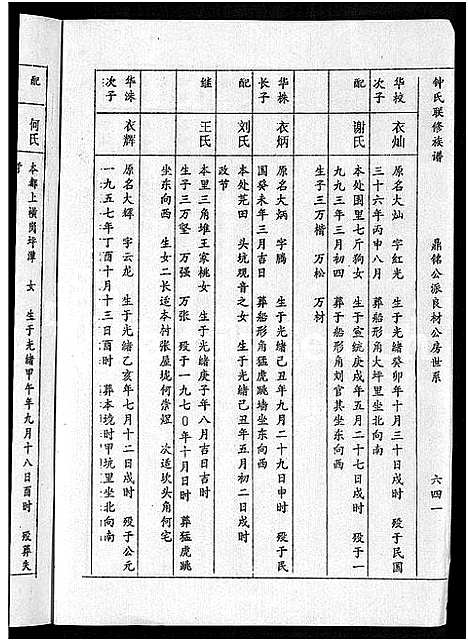 钟氏联修族谱
鼎铭公派良材公房世系
六四一
华校次子
衣灿
原名大灿 字红光 生于光绪癸卯年十月三十日戌时 殁于民国
三十六年丙申八月 葬船形角大坪里坐北向南
配
谢氏
本处围里七斤狗女 生于宣统庚戌年五月二十七日戌时 殁于一
九九三年三月初四 葬于船形角刘官其坐东向西
生子三万楷 万松 万材
华株长子
衣炳
原名大炳 字腾 生于光绪己丑年九月二十九日申时 殁于民
国癸未年三月吉日 葬船形角猛虎跳墙坐东向西
配
刘氏
本处芫田 头坑观音之女 生于光绪己丑年五月初二日戌时
改节
继
王氏
本里三角堆王家桃女 生于光绪庚子年八月吉日吉时
生子三万坚 万强 万张 殁于一九七〇年十月日时 葬猛虎跳
坐东向西 生女二长适本村张屋垅何荣煜 次适坎头角何宅
华洙次子
衣辉
原名大辉 字云龙 生于光绪乙亥年七月十二日戌时 殁于公元
一九五七年丁酉十月十三日酉时 葬本境时甲坑里坐北向南
配
何氏
本都上横岗坪潭 女 生于光绪甲午年九月十八日酉时 殁葬失